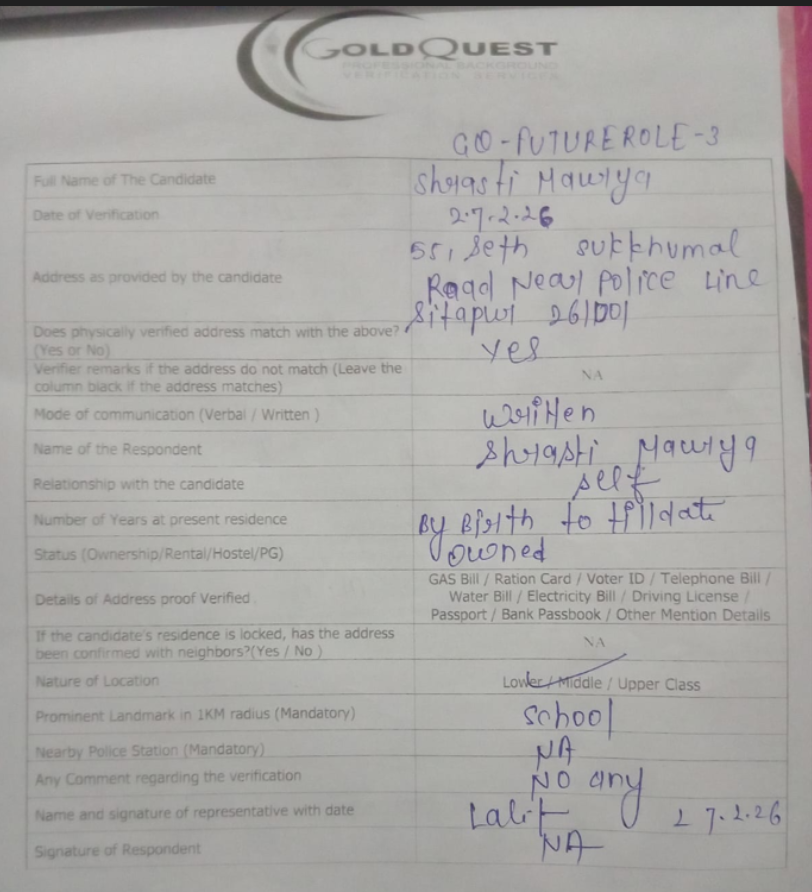 GOLDQUEST
PROFESSIONAL BACKGROUND
VERIFICATION SERVICES
GQ-FUTUREROLE-3
Full Name of The Candidate Shrasti Maurya
Date of Verification 27.2.26
55, Seth Sukkhumal
Address as provided by the candidate Road Near Police Line
Sitapur 261001
Does physically verified address match with the above?
(Yes or No) Yes
Verifier remarks if the address do not match (Leave the
column black if the address matches) NA
Mode of communication (Verbal / Written ) Written
Name of the Respondent Shrasti Maurya
Relationship with the candidate self
Number of Years at present residence By Birth to tilldate
Status (Ownership/Rental/Hostel/PG) Owned
GAS Bill / Ration Card / Voter ID / Telephone Bill /
Details of Address proof Verified Water Bill / Electricity Bill / Driving License /
Passport / Bank Passbook / Other Mention Details
If the candidate's residence is locked, has the address
been confirmed with neighbors?(Yes / No ) NA
Nature of Location Lower / Middle / Upper Class
Prominent Landmark in 1KM radius (Mandatory) School
Nearby Police Station (Mandatory) NA
Any Comment regarding the verification NO any
Name and signature of representative with date Lalit 27.2.26
Signature of Respondent NA